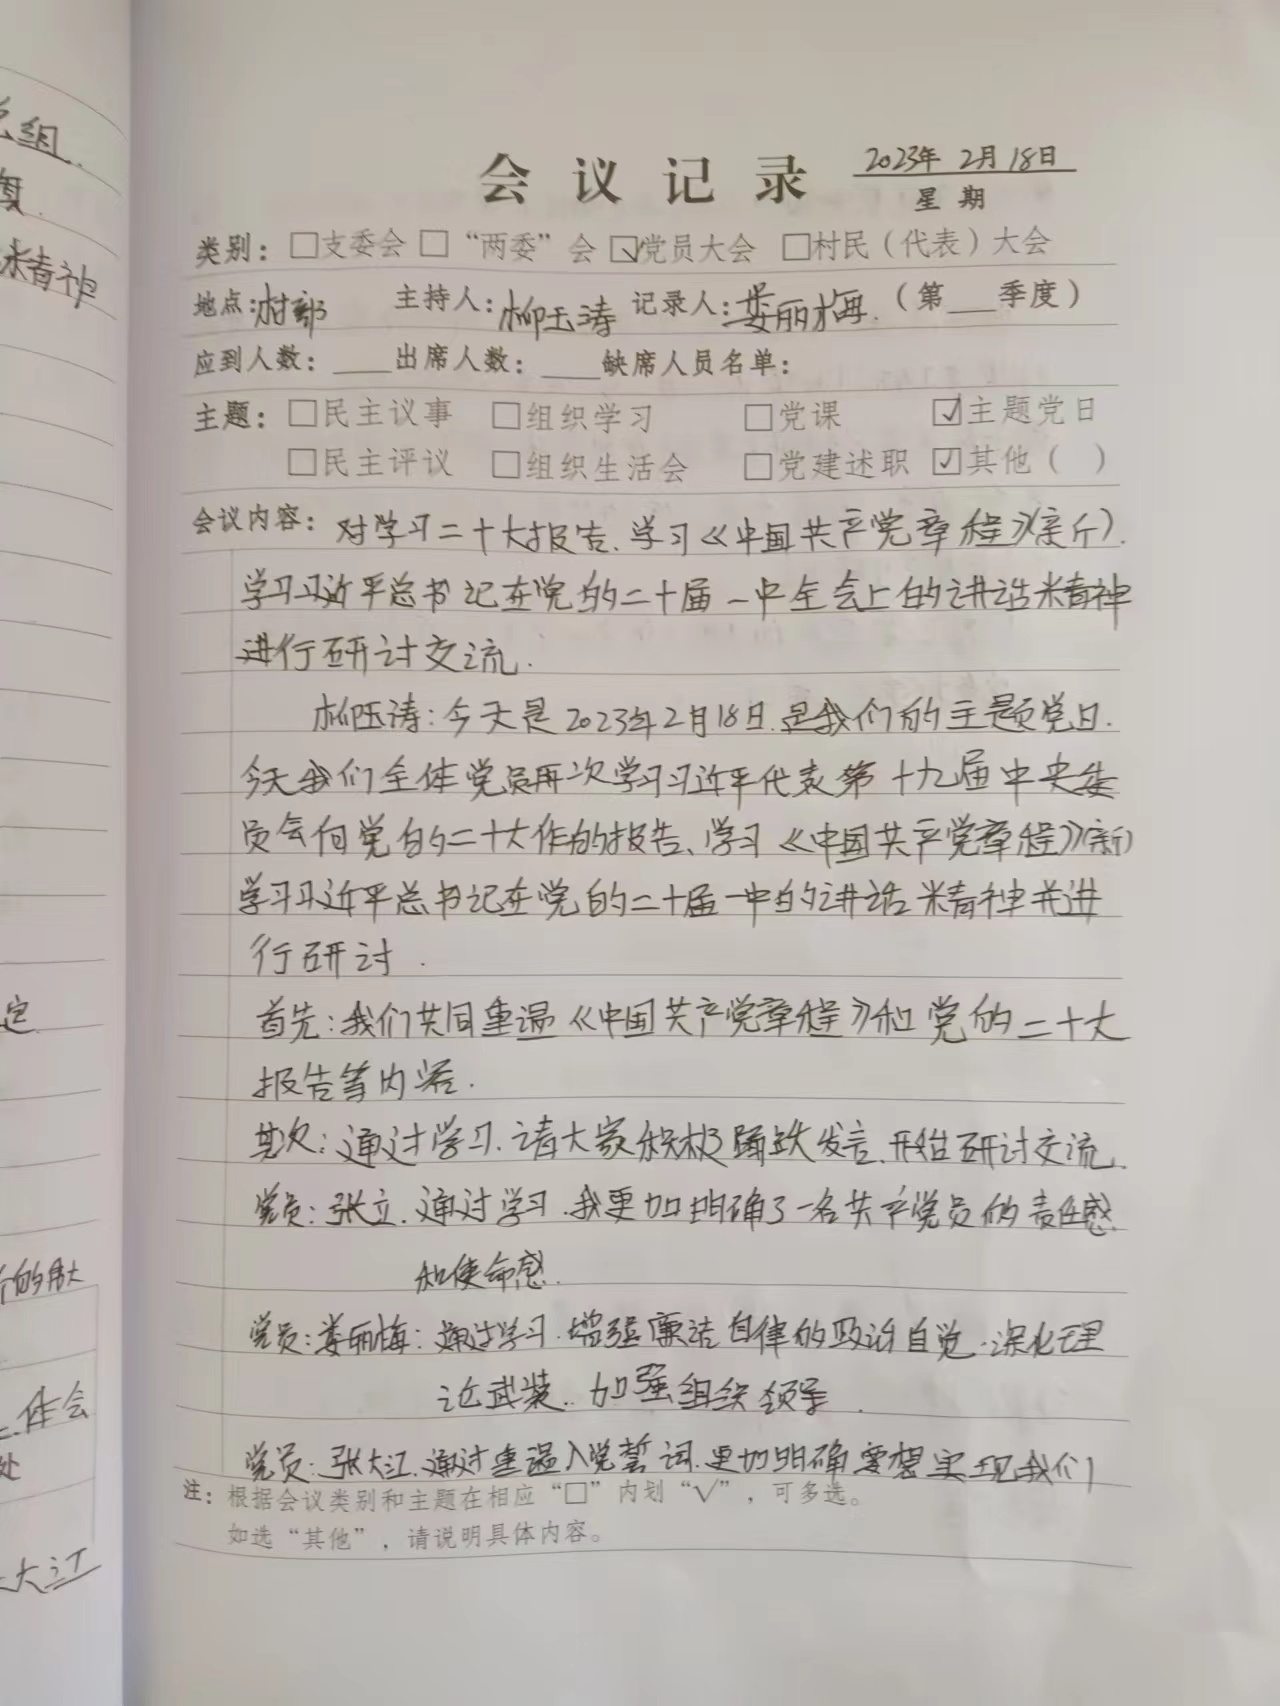 会议记录 2023年2月18日
星期
类别：□支委会 □“两委”会 ☑党员大会 □村民（代表）大会
地点：村部 主持人：柳玉涛 记录人：娄丽梅.（第___季度）
应到人数：____出席人数：____缺席人员名单：
主题：□民主议事 □组织学习 □党课 ☑主题党日
□民主评议 □组织生活会 □党建述职 ☑其他（ ）
会议内容：对学习二十大报告、学习《中国共产党章程》（ ）.
学习习近平总书记在党的二十届一中全会上的讲话精神
进行研讨交流.
柳玉涛：今天是2023年2月18日.是我们的主题党日.
今天我们全体党员再次学习习近平代表第十九届中央委
员会向党的二十大作的报告、学习《中国共产党章程》（新）
学习习近平总书记在党的二十届一中的讲话精神并进
行研讨.
首先：我们共同重温《中国共产党章程》和党的二十大
报告等内容.
其次：通过学习.请大家积极踊跃发言、开始研讨交流.
党员：张立.通过学习.我更加明确了一名共产党员的责任感
和使命感.
党员：娄丽梅：通过学习.增强廉洁自律的政治自觉.深化理
论武装..加强组织领导.
党员：张大江.通过重温入党誓词.更加明确要想实现我们
注：根据会议类别和主题在相应“□”内划“√”，可多选。
如选“其他”，请说明具体内容。
组..
精神
定
的
体会
处
大江